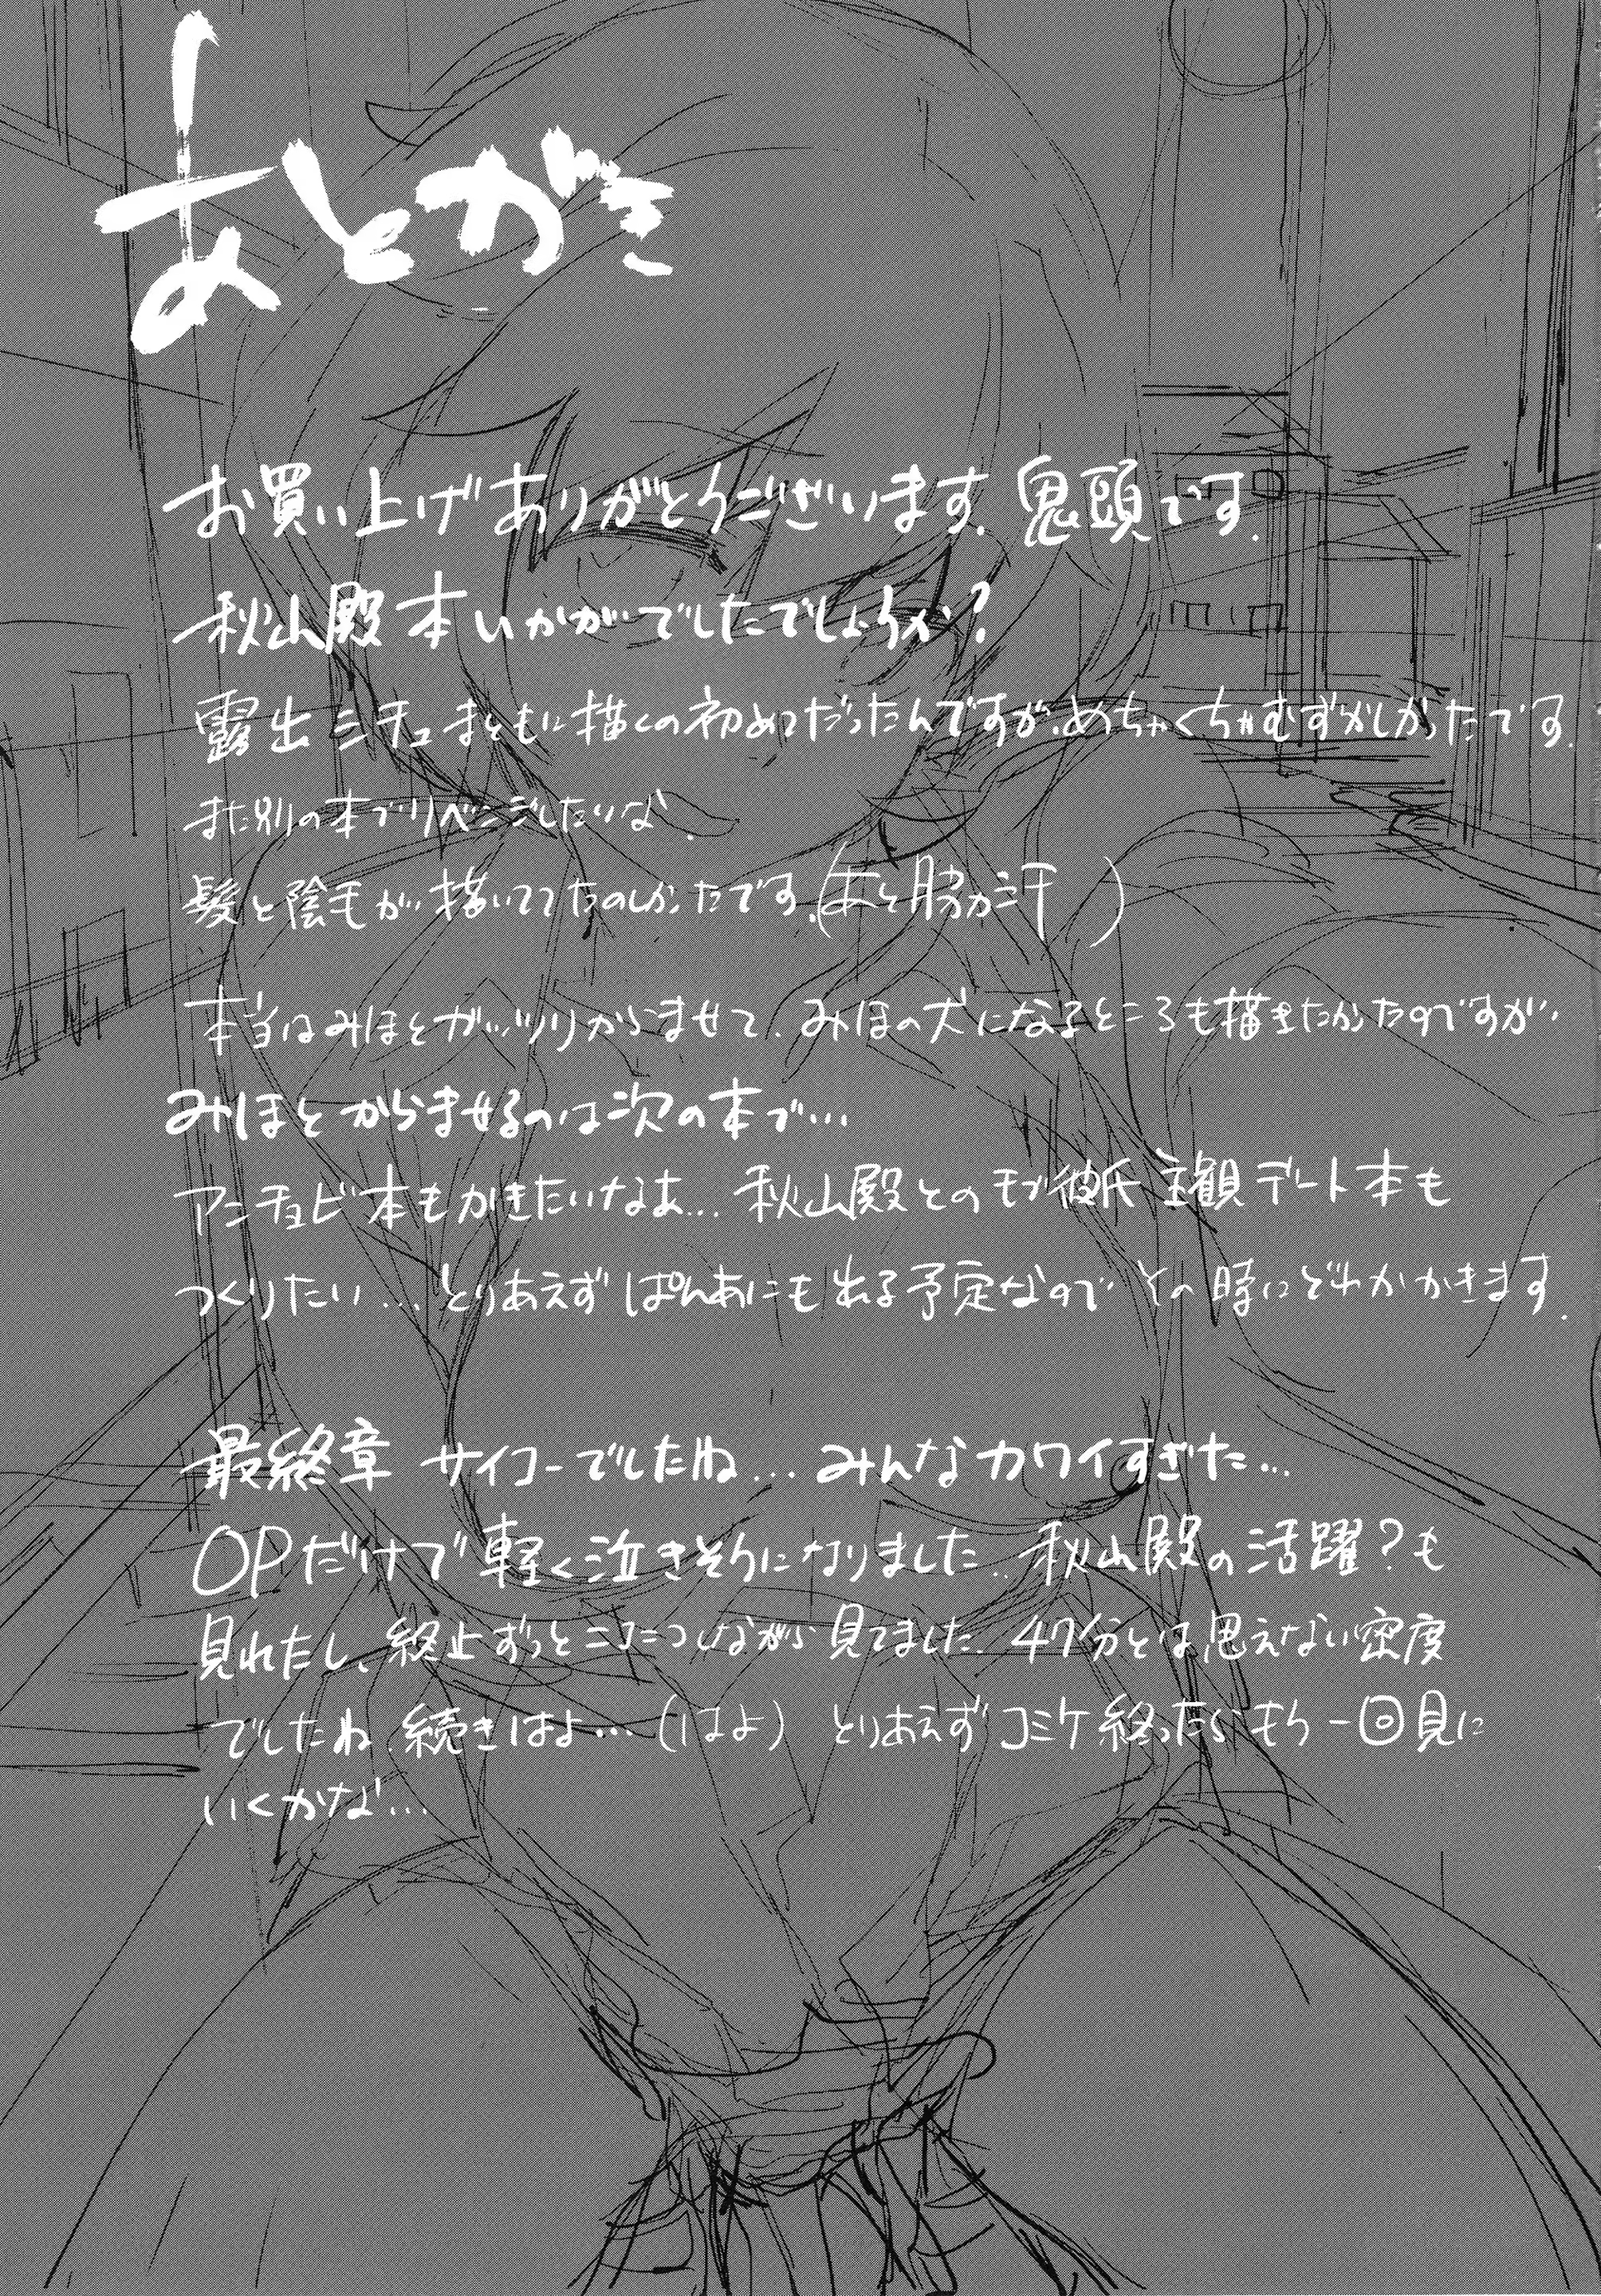 あとがき
お買い上げありがとうございます。鬼頭です.
秋山殿本いかがでしたでしょうか?
露出シチュまともに描くの初めてだったんですが、めちゃくちゃむずかしかったです.
また別の本でリベンジしたいな.
髪と陰毛が描いててたのしかったです.(あと脇か汗)
本当はみほとガッツリからませて、みほの犬になるところも描きたかったのですが、
みほとからませるのは次の本で…
アンチョビ本もかきたいなぁ… 秋山殿とのモブ彼氏主観デート本も
つくりたい… とりあえずぱんあにも出る予定なのでその時にどれかかきます.
最終章 サイコーでしたね… みんなカワイすぎた…
OPだけで軽く泣きそうになりました.. 秋山殿の活躍?も
見れたし、終止ずっとニコニコしながら見てました. 47分とは思えない密度
でしたね. 続きはよ…(はよ) とりあえずコミケ終ったらもう一回見に
いくかな…